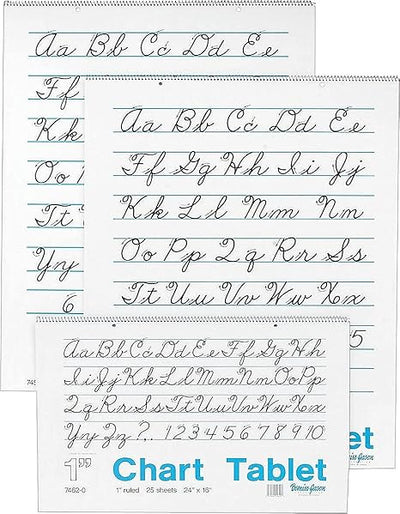 Aa Bb Cc Dd Ee
Ff
Kk
Oo
Tt
Yy
6
Aa Bb Cc Dd Ee
Ff Gg Hh Ii Jj
Kk Ll Mm Nn
Oo Pp Qq Rr Ss
Tt Uu Vv Ww Xx
5
Aa Bb Cc Dd Ee Ff Gg Hh
Ii Jj Kk Ll Mm Nn Oo Pp
Qq Rr Ss Tt Uu Vv Ww Xx
Yy Zz ?.. 1 2 3 4 5 6 7 8 9 10
1" Chart Tablet
7462-0 1" ruled 25 sheets 24" x 16"
et